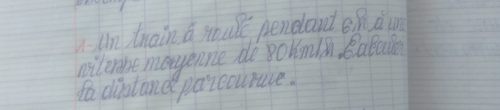 1- Un train à roulé pendant 6h à une
vitesse moyenne de 80km/h Calculer
la distance parcourue.